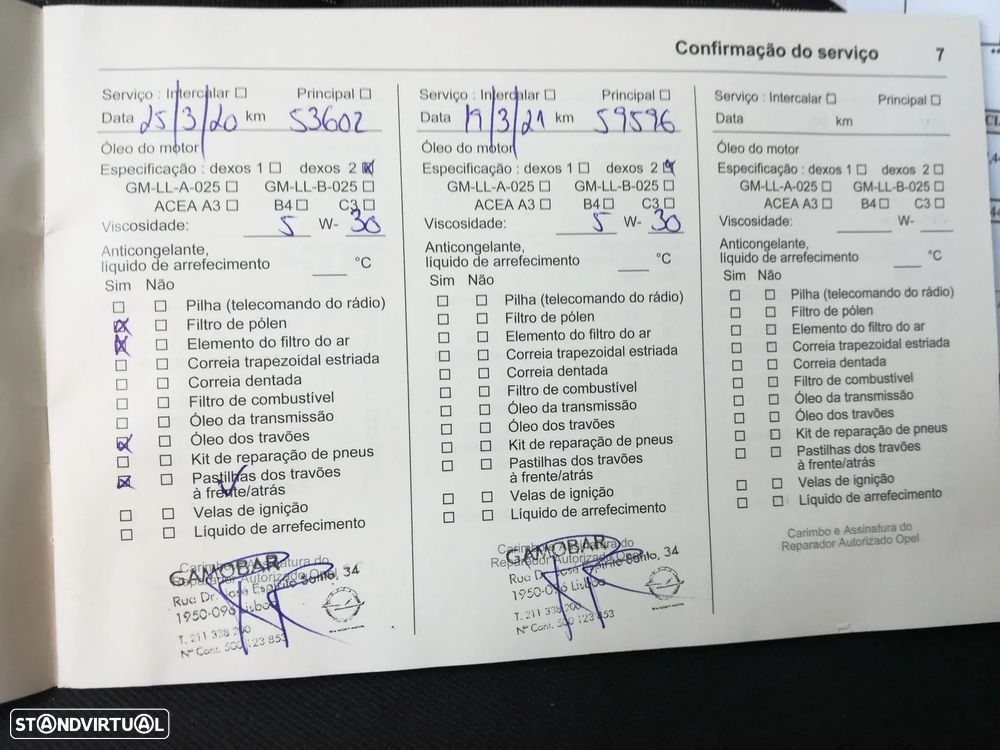 Confirmação do serviço 7
Serviço : Intercalar ☐ Principal ☐
Data 25/3/20 km 53602
Óleo do motor
Especificação : dexos 1 ☐ dexos 2 ☒
GM-LL-A-025 ☐ GM-LL-B-025 ☐
ACEA A3 ☐ B4 ☐ C3 ☐
Viscosidade: 5 W- 30
Anticongelante,
líquido de arrefecimento ____ °C
Sim Não
☐ ☐ Pilha (telecomando do rádio)
☒ ☐ Filtro de pólen
☒ ☐ Elemento do filtro do ar
☐ ☐ Correia trapezoidal estriada
☐ ☐ Correia dentada
☐ ☐ Filtro de combustível
☐ ☐ Óleo da transmissão
☒ ☐ Óleo dos travões
☐ ☐ Kit de reparação de pneus
☒ ☐ Pastilhas dos travões
à frente/atrás
☐ ☐ Velas de ignição
☐ ☐ Líquido de arrefecimento
Carimbo e Assinatura do
Reparador Autorizado Opel
GAMOBAR
Rua Dr. José Espírito Santo, 34
1950-096 Lisboa
T. 211 338 200
Nº Cont. 500 123 853
Serviço : Intercalar ☐ Principal ☐
Data 19/3/21 km 59596
Óleo do motor
Especificação : dexos 1 ☐ dexos 2 ☒
GM-LL-A-025 ☐ GM-LL-B-025 ☐
ACEA A3 ☐ B4 ☐ C3 ☐
Viscosidade: 5 W- 30
Anticongelante,
líquido de arrefecimento ____ °C
Sim Não
☐ ☐ Pilha (telecomando do rádio)
☐ ☐ Filtro de pólen
☐ ☐ Elemento do filtro do ar
☐ ☐ Correia trapezoidal estriada
☐ ☐ Correia dentada
☐ ☐ Filtro de combustível
☐ ☐ Óleo da transmissão
☐ ☐ Óleo dos travões
☐ ☐ Kit de reparação de pneus
☐ ☐ Pastilhas dos travões
à frente/atrás
☐ ☐ Velas de ignição
☐ ☐ Líquido de arrefecimento
Carimbo e Assinatura do
Reparador Autorizado Opel
GAMOBAR
Rua Dr. José Espírito Santo, 34
1950-096 Lisboa
T. 211 338 200
Nº Cont. 500 123 853
Serviço : Intercalar ☐ Principal ☐
Data km
Óleo do motor
Especificação : dexos 1 ☐ dexos 2 ☐
GM-LL-A-025 ☐ GM-LL-B-025 ☐
ACEA A3 ☐ B4 ☐ C3 ☐
Viscosidade: ____ W- ____
Anticongelante,
líquido de arrefecimento ____ °C
Sim Não
☐ ☐ Pilha (telecomando do rádio)
☐ ☐ Filtro de pólen
☐ ☐ Elemento do filtro do ar
☐ ☐ Correia trapezoidal estriada
☐ ☐ Correia dentada
☐ ☐ Filtro de combustível
☐ ☐ Óleo da transmissão
☐ ☐ Óleo dos travões
☐ ☐ Kit de reparação de pneus
☐ ☐ Pastilhas dos travões
à frente/atrás
☐ ☐ Velas de ignição
☐ ☐ Líquido de arrefecimento
Carimbo e Assinatura do
Reparador Autorizado Opel
STANDVIRTUAL